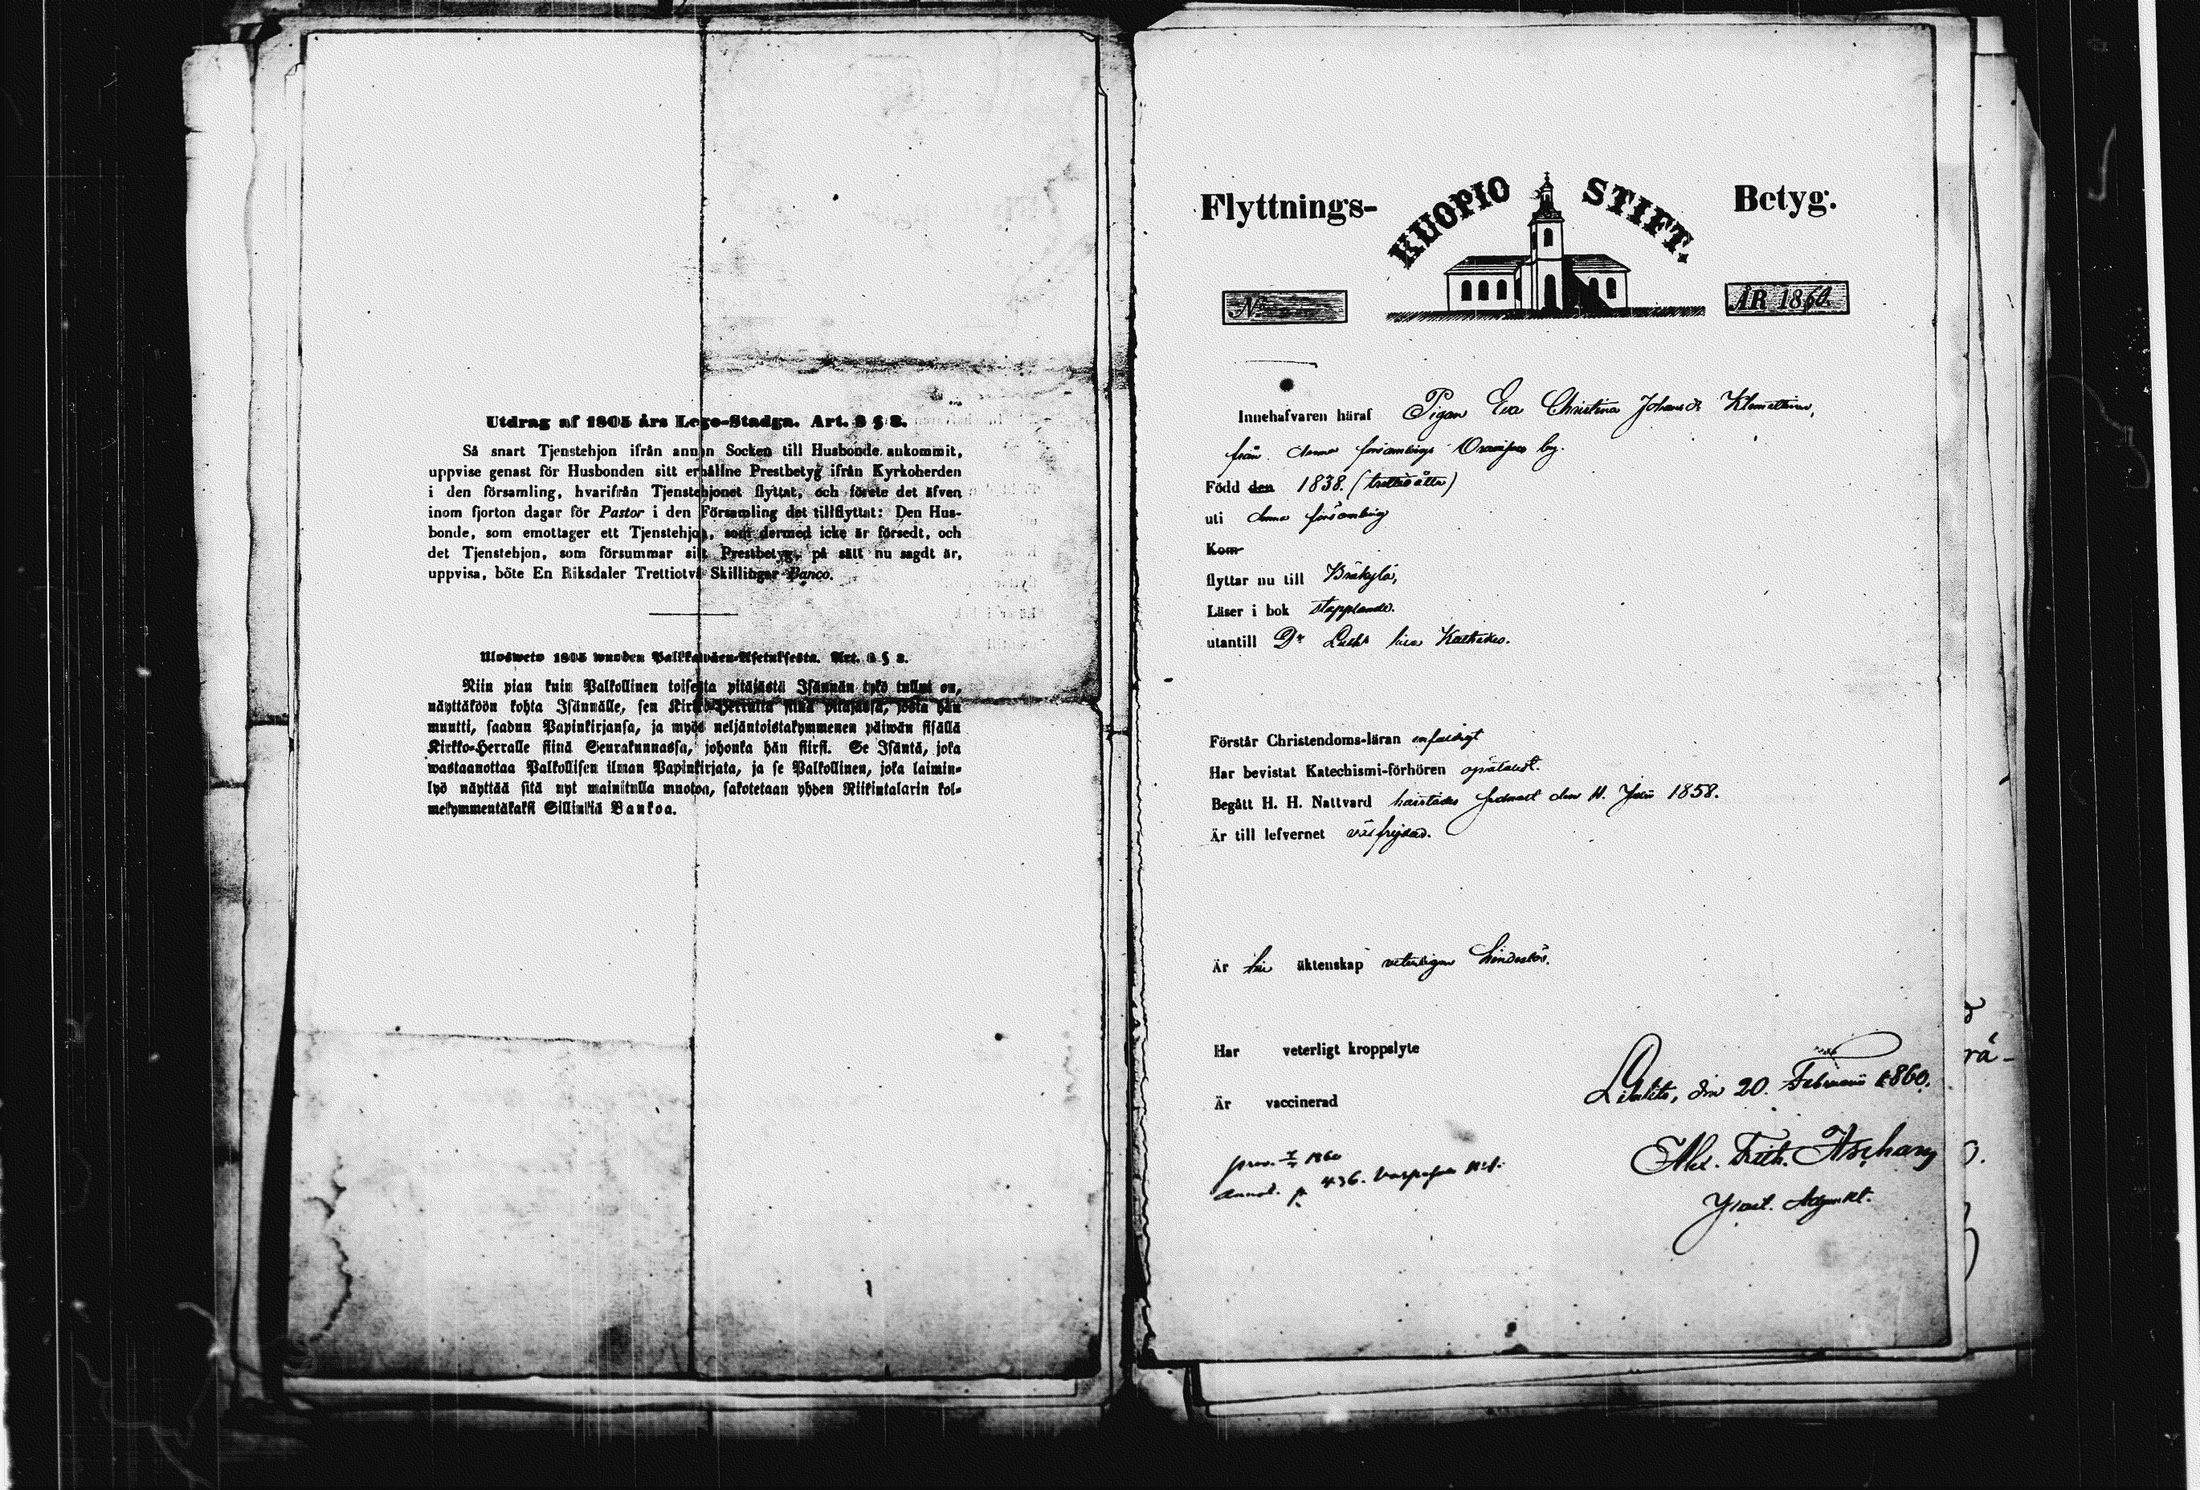 Utdrag af 1805 års Lego-Stadga. Art. 3 § 8.
Så snart Tjenstehjon ifrån annan Socken till Husbonde ankommit,
uppvise genast för Husbonden sitt erhållne Prestbetyg ifrån Kyrkoherden
i den församling, hvarifrån Tjenstehjonet flyttat, och förete det äfven
inom fjorton dagar för Pastor i den Församling det tillflyttat: Den Hus-
bonde, som emottager ett Tjenstehjon, som dermed icke är försedt, och
det Tjenstehjon, som försummar sitt Prestbetyg, på sätt nu sagdt är,
uppvisa, böte En Riksdaler Trettiotvå Skillingar Banco.
Ulosweto 1805 wuoden Palkkawäen-Asetuksesta. Art. 3 § 8.
Niin pian kuin Palkollinen toisesta pitäjästä Isännän tykö tullut on,
näyttäköön kohta Isännälle, sen Kirkko-Herralta siinä pitäjässä, josta hän
muutti, saadun Papinkirjansa, ja myös neljäntoistakymmenen päiwän sisällä
Kirkko-Herralle siinä Seurakunnassa, johonka hän siirsi. Se Isäntä, joka
wastaanottaa Palkollisen ilman Papinkirjata, ja se Palkollinen, joka laimin-
lyö näyttää sitä nyt mainitulla muotoa, sakotetaan yhden Riikintalarin kol-
mekymmentäkaksi Sillinkiä Bankoa.
Flyttnings- KUOPIO STIFT. Betyg.
No ÅR 1860.
Innehafvaren häraf Pigan Eva Christina Johansdr
från denna församlings by.
Född den 1838. (trettioåtta)
uti denna församling
Kom
flyttar nu till Bräkylä,
Läser i bok stapplande.
utantill Dr Luth: lilla Kateches.
Förstår Christendoms-läran enfaldigt
Har bevistat Katechismi-förhören
Begått H. H. Nattvard härstädes sednast den 11. Julii 1858.
Är till lefvernet väl frejdad.
Är till äktenskap veterligen hinderlös.
Har veterligt kroppslyte
Är vaccinerad
den 20. Februarii 1860.
prod. 1860
annot. p. 436.
Adjunkt.